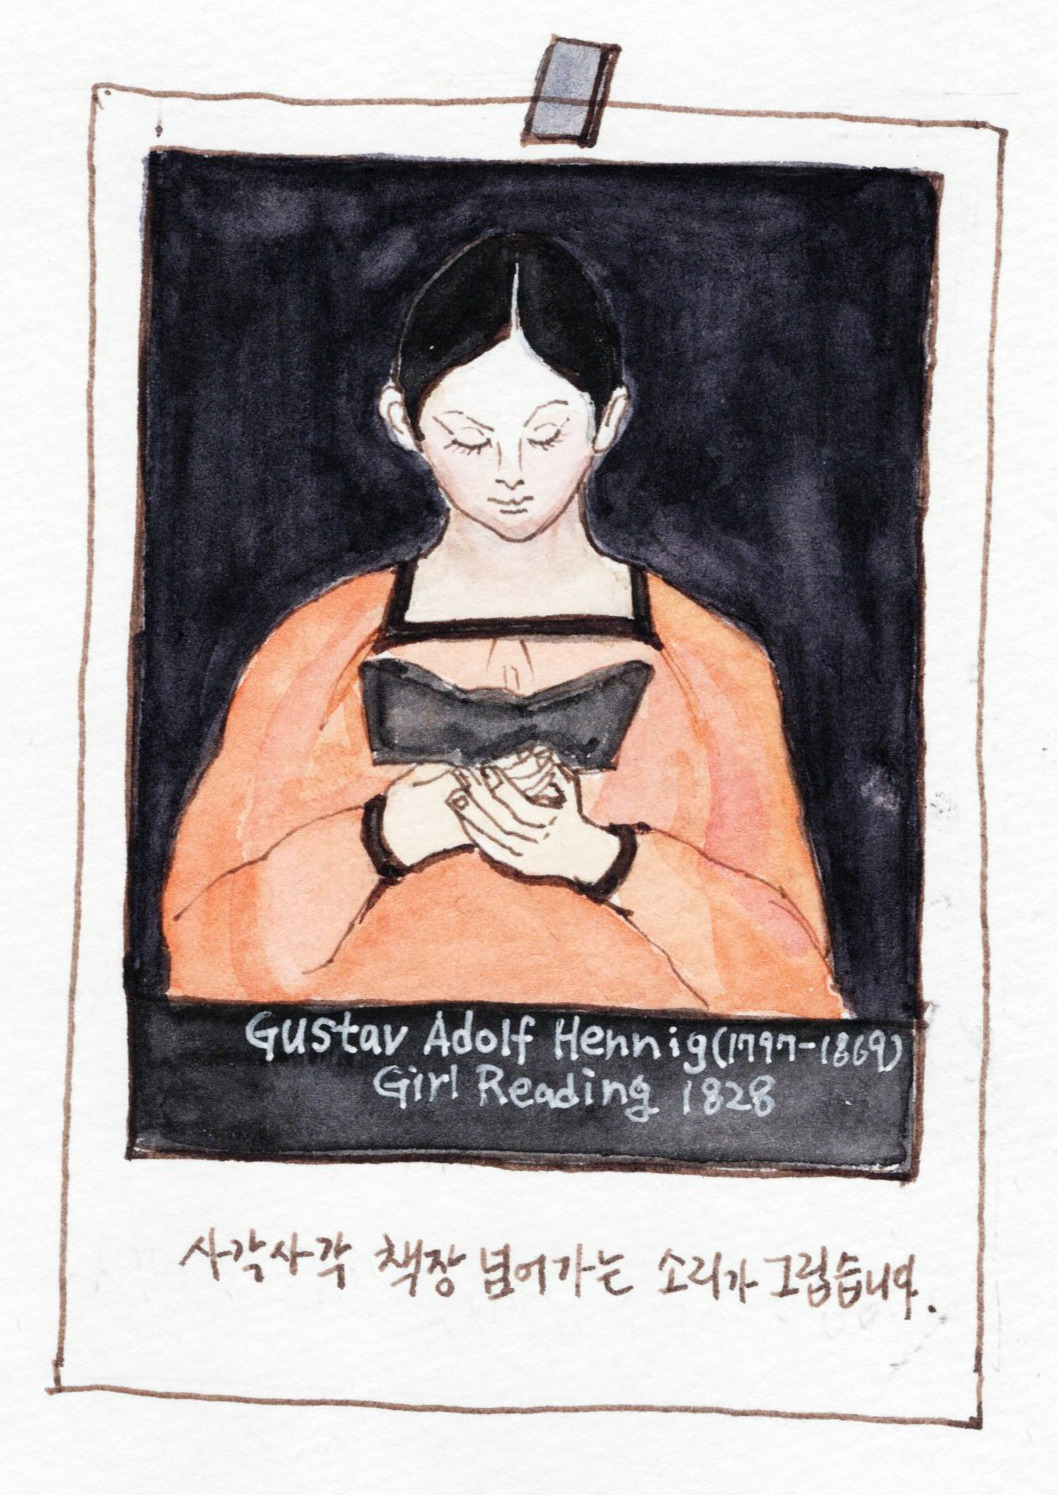 Gustav Adolf Hennig(1797-1869)
Girl Reading 1828
사각사각 책장 넘어가는 소리가 그립습니다.